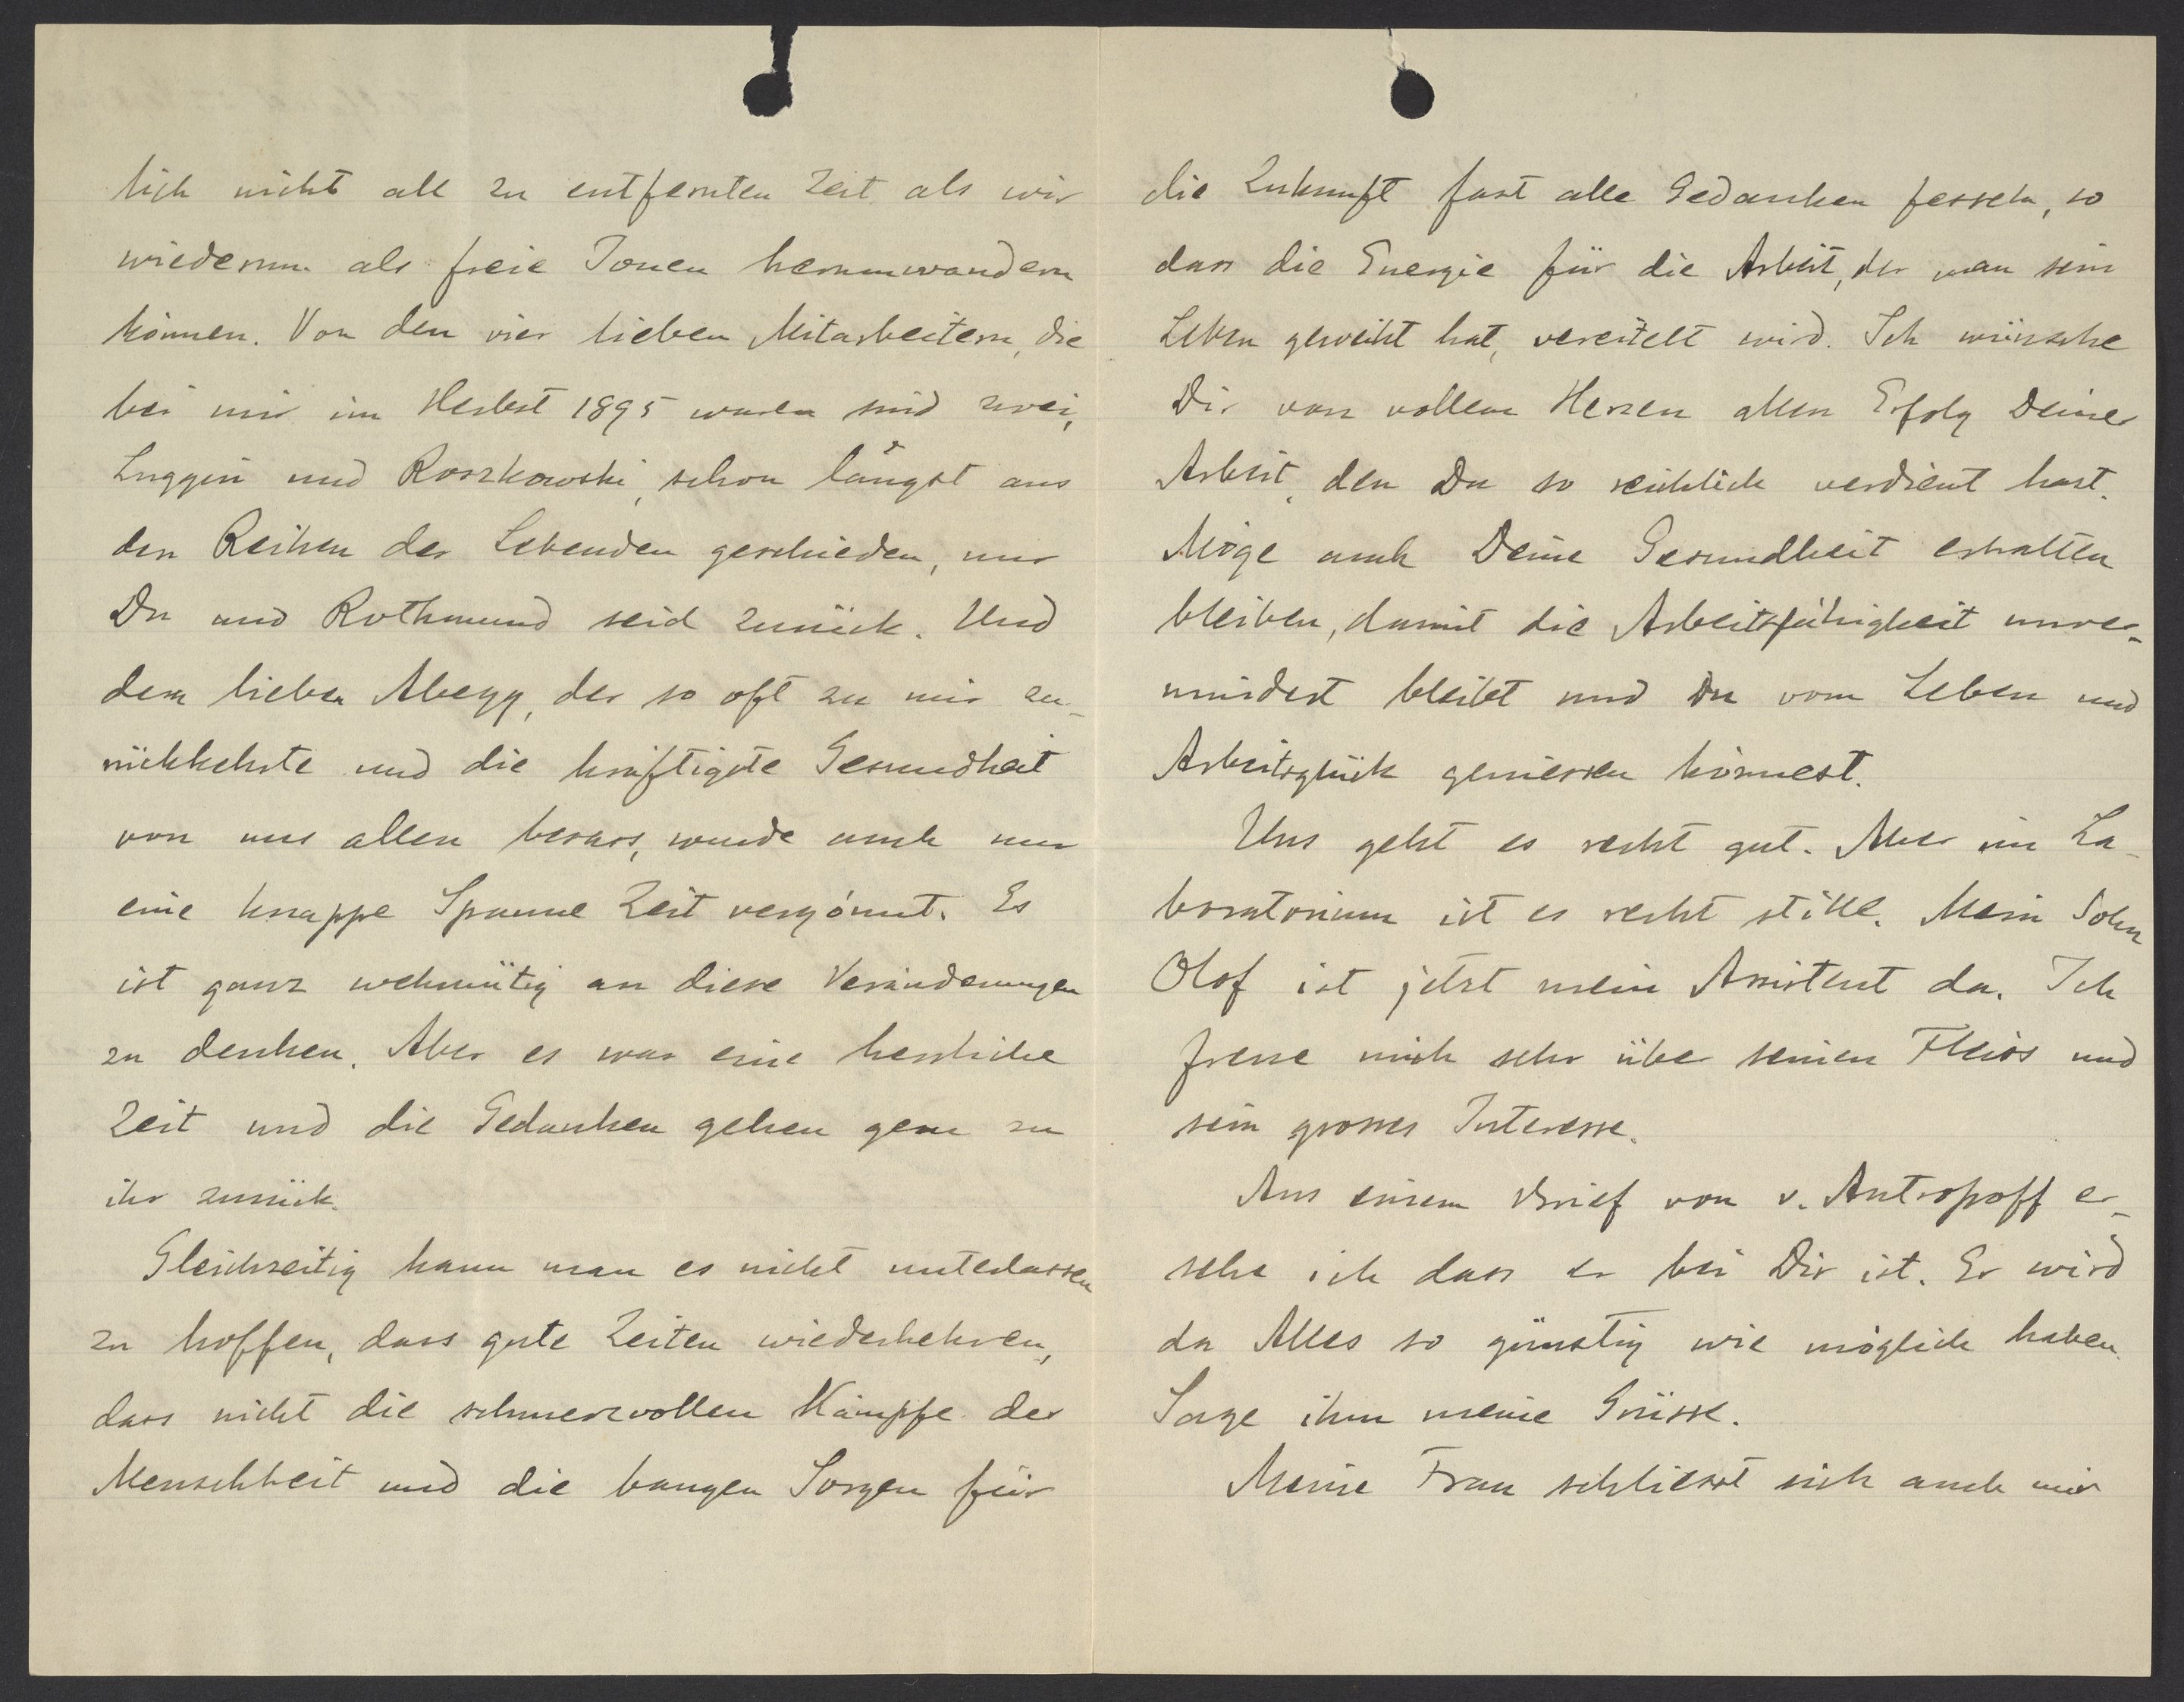 lich nicht all zu entfernten Zeit als wir
wiederum als freie Ionen herumwandern
können. Von den vier lieben Mitarbeitern, die
bei mir im Herbst 1895 waren sind zwei,
Luggin und Roszkowski, schon längst aus
den Reihen der Lebenden geschieden, nur
Du und Rothmund seid zurück. Und
dem lieben Abegg, der so oft zu mir zu-
rückkehrte und die kräftigste Gesundheit
von uns allen besass, wurde auch nur
eine knappe Spanne Zeit vergönnt. Es
ist ganz wehmütig an diese Veränderungen
zu denken. Aber es war eine herrliche
Zeit und die Gedanken gehen gern zu
ihr zurück.
Gleichzeitig kann man es nicht unterlassen
zu hoffen, dass gute Zeiten wiederkehren,
dass nicht die schmerzvollen Kämpfe der
Menschheit und die bangen Sorgen für
die Zukunft fast alle Gedanken fesseln, so
dass die Energie für die Arbeit, der man sein
Leben geweiht hat, vereitelt wird. Ich wünsche
Dir von vollem Herzen allen Erfolg Deiner
Arbeit, den Du so reichlich verdient hast.
Möge auch Deine Gesundheit erhalten
bleiben, damit die Arbeitsfähigkeit unver-
mindert bleibt und Du vom Leben und
Arbeitsglück geniessen könnest.
Uns geht es recht gut. Aber im La-
boratorium ist es recht stille. Mein Sohn
Olof ist jetzt mein Assistent da. Ich
freue mich sehr über seinen Fleiss und
sein grosses Interesse.
Aus einem Brief von v. Antropoff er-
sehe ich dass er bei Dir ist. Er wird
da Alles so günstig wie möglich haben.
Sage ihm meine Grüsse.
Meine Frau schliesst sich auch mir